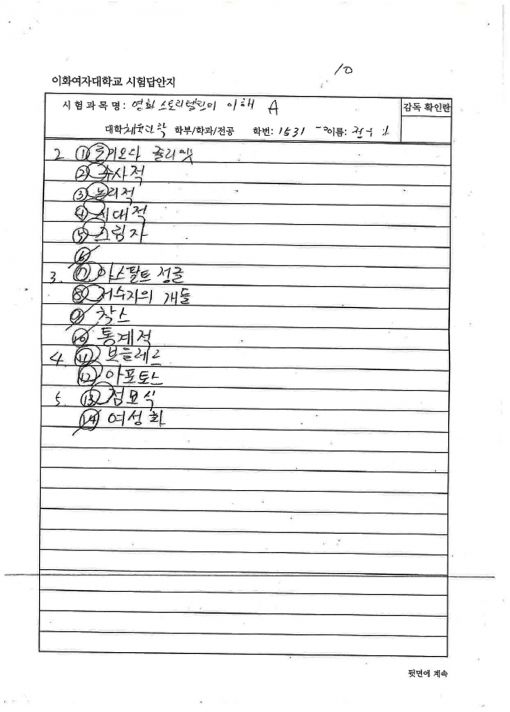 10
이화여자대학교 시험답안지
시 험 과 목 명 : 영화 스토리텔링의 이해 A
감독 확인란
대학 체육대학 학부/학과/전공 학번: 1531 이름:
2 ① 줄리엣
② 수사적
③ 논리적
④ 시대적
⑤ 그림자
⑥
3. ⑦ 아스팔트 정글
⑧ 저수지의 개들
⑨ 찰스
⑩ 통계적
4. ⑪ 보들레르
⑫
5. ⑬ 점묘식
⑭ 여성화
뒷면에 계속